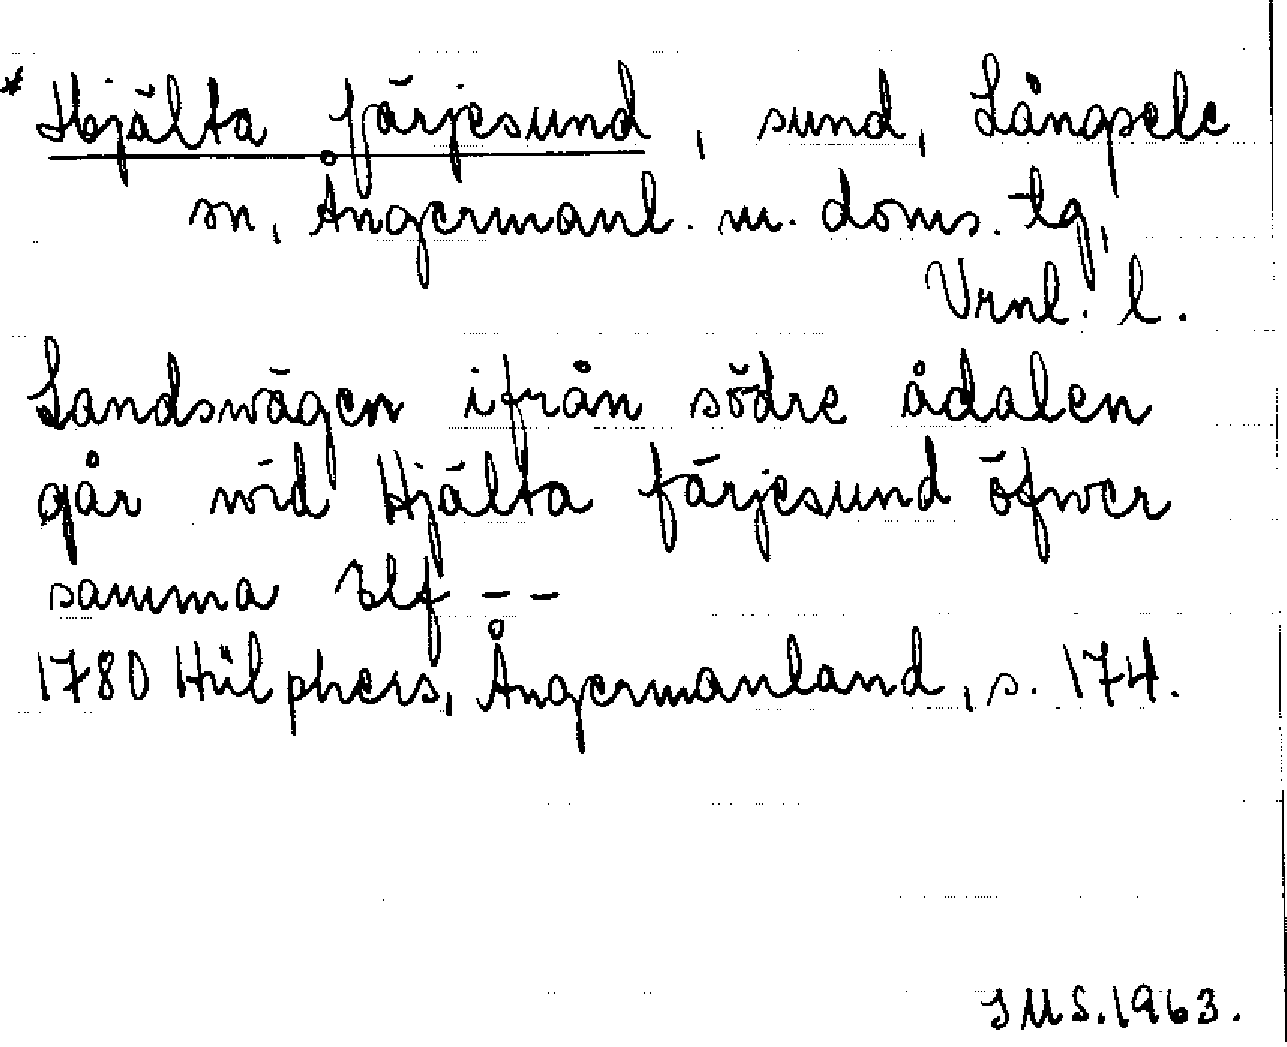 * Hjälta färjesund, sund, Långsele
sn, Ångermanl. m. doms. tg,
Vrnl. l.
Landswägen ifrån södre ådalen
går wid Hjälta färjesund öfwer
samma Elf --
1780 Hülphers, Ångermanland, s. 174.
IMS. 1963.